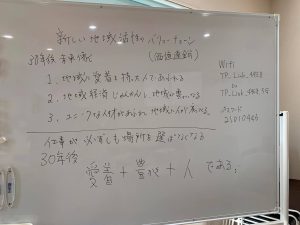 新しい地域活性の バリューチェーン
30年後 未来像 (価値連鎖)
1. 地域に愛着を持った人であふれる
2. 地域経済 じゅんかんし 地域に豊かになる
3. ユニークな人材があふれ 地域に
仕事が 必ずしも場所を 選ばなくなる
30年後
愛着 + 豊かさ + 人 である。
WiFi
TP-Link_48E8
or
TP-Link_48E8_5G
パスワード
25010445